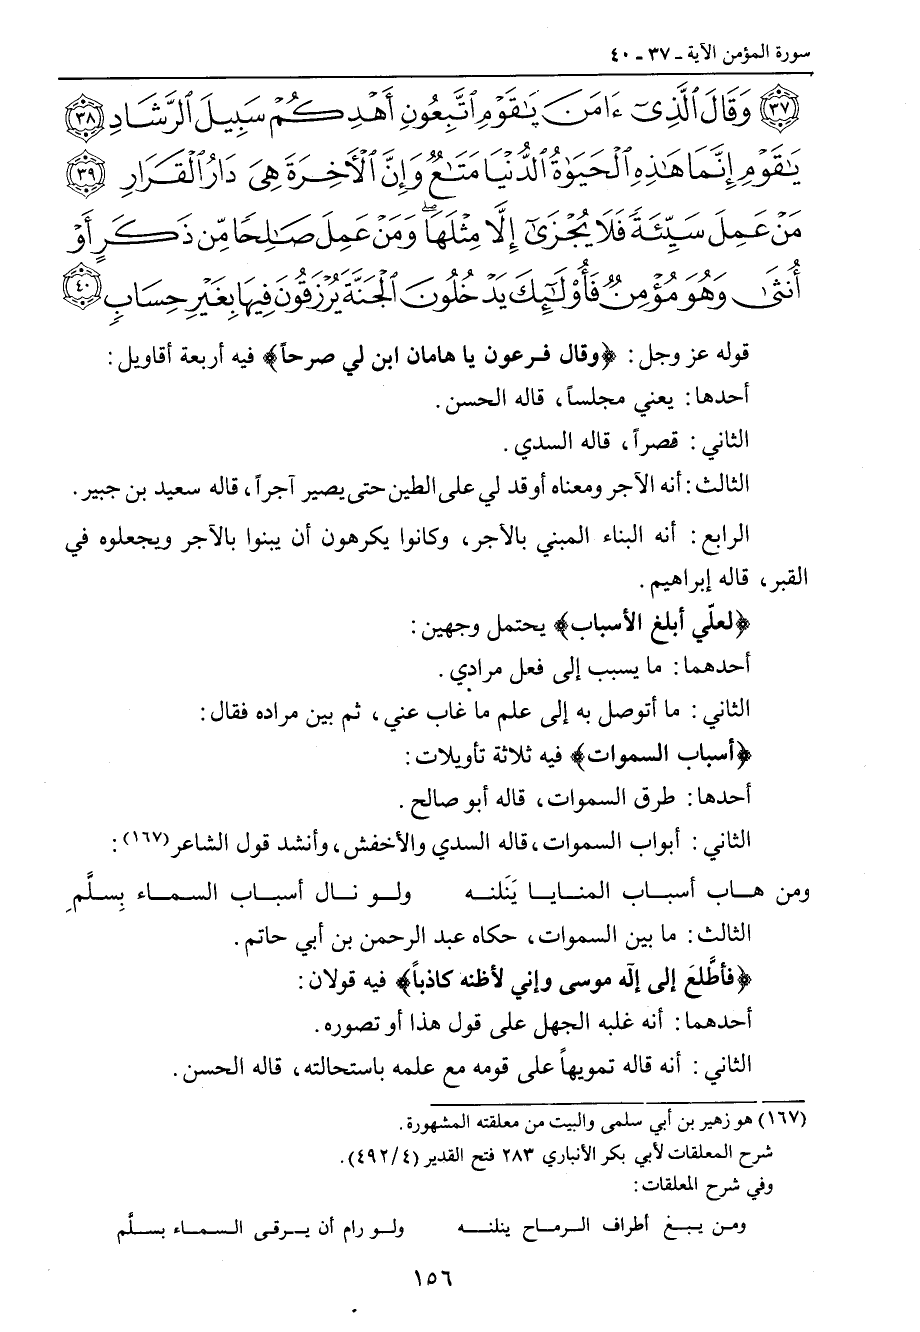 سورة المؤمن الآية ـ ٣٧ ـ ٤٠
﴿٣٧﴾ وَقَالَ ٱلَّذِىٓ ءَامَنَ يَٰقَوْمِ ٱتَّبِعُونِ أَهْدِكُمْ سَبِيلَ ٱلرَّشَادِ ﴿٣٨﴾
يَٰقَوْمِ إِنَّمَا هَٰذِهِ ٱلْحَيَوٰةُ ٱلدُّنْيَا مَتَٰعٌ وَإِنَّ ٱلْأَخِرَةَ هِىَ دَارُ ٱلْقَرَارِ ﴿٣٩﴾
مَنْ عَمِلَ سَيِّئَةً فَلَا يُجْزَىٰٓ إِلَّا مِثْلَهَا ۖ وَمَنْ عَمِلَ صَٰلِحًا مِّن ذَكَرٍ أَوْ
أُنثَىٰ وَهُوَ مُؤْمِنٌ فَأُو۟لَٰٓئِكَ يَدْخُلُونَ ٱلْجَنَّةَ يُرْزَقُونَ فِيهَا بِغَيْرِ حِسَابٍ ﴿٤٠﴾
قوله عز وجل: ﴿وقال فرعون يا هامان ابن لي صرحاً﴾ فيه أربعة أقاويل:
أحدها: يعني مجلساً، قاله الحسن.
الثاني: قصراً، قاله السدي.
الثالث: أنه الآجر ومعناه أوقد لي على الطين حتى يصير آجراً، قاله سعيد بن جبير.
الرابع: أنه البناء المبني بالآجر، وكانوا يكرهون أن يبنوا بالآجر ويجعلوه في
القبر، قاله إبراهيم.
﴿لعلّي أبلغ الأسباب﴾ يحتمل وجهين:
أحدهما: ما يسبب إلى فعل مرادي.
الثاني: ما أتوصل به إلى علم ما غاب عني، ثم بين مراده فقال:
﴿أسباب السموات﴾ فيه ثلاثة تأويلات:
أحدها: طرق السموات، قاله أبو صالح.
الثاني: أبواب السموات، قاله السدي والأخفش، وأنشد قول الشاعر(١٦٧):
ومن هاب أسباب المنايا يَنَلنه ولو نال أسباب السماء بِسلَّمِ
الثالث: ما بين السموات، حكاه عبد الرحمن بن أبي حاتم.
﴿فأطَّلعَ إلى إلٓه موسى وإني لأظنه كاذباً﴾ فيه قولان:
أحدهما: أنه غلبه الجهل على قول هذا أو تصوره.
الثاني: أنه قاله تمويهاً على قومه مع علمه باستحالته، قاله الحسن.
(١٦٧) هو زهير بن أبي سلمى والبيت من معلقته المشهورة.
شرح المعلقات لأبي بكر الأنباري ٢٨٣ فتح القدير (٤٩٢/٤).
وفي شرح المعلقات:
ومن يبغ أطراف الرماح ينلنه ولو رام أن يرقى السماء بسلَّم
١٥٦